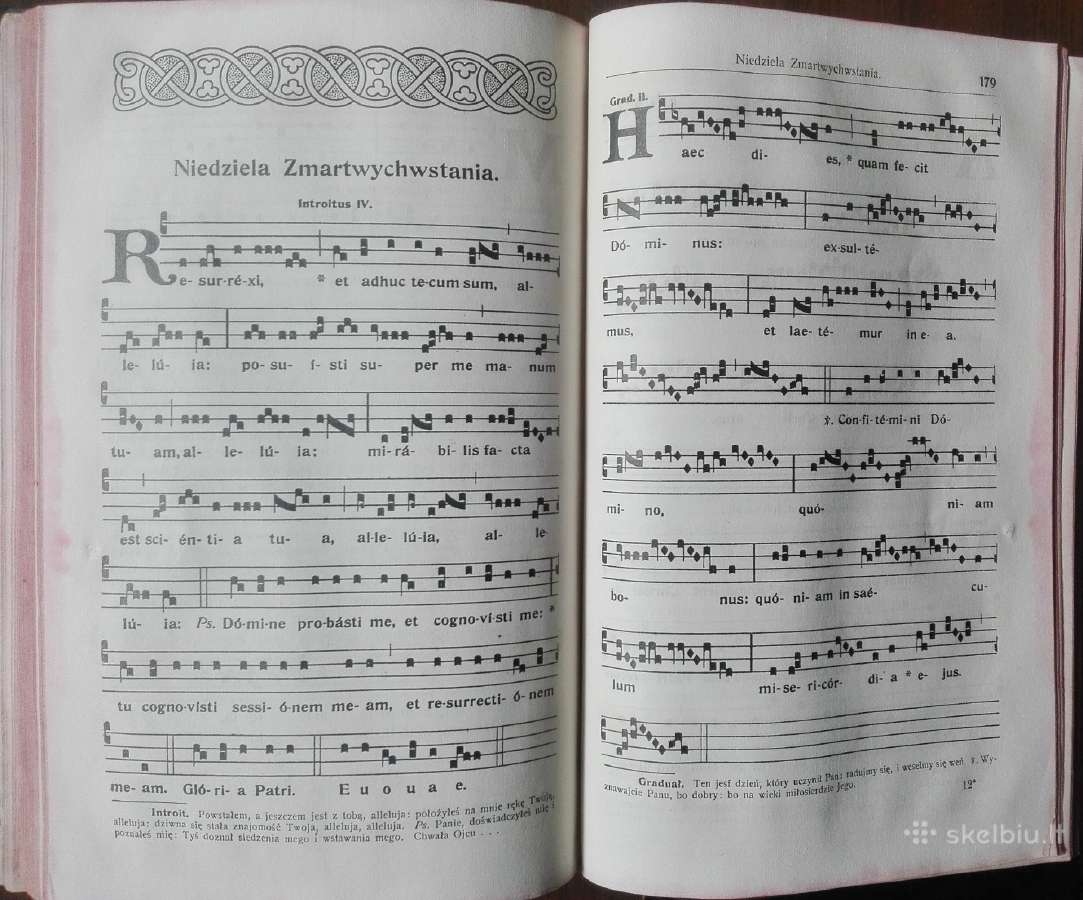 Niedziela Zmartwychwstania.
Introitus IV.
Re- sur-ré-xi, * et adhuc te-cum sum, al-
le- lú- ia: po- su- í- sti su- per me ma- num
tu- am, al- le- lú- ia: mi-rá- bi- lis fa- cta
est sci- én- ti- a tu- a, al-le- lú-ia, al- le-
lú- ia: Ps. Dó-mi-ne pro-básti me, et cogno-ví-sti me: *
tu cogno-vísti sessi- ó-nem me- am, et re-surrecti- ó-nem
me- am. Gló- ri- a Patri. E u o u a e.
Introit. Powstałem, a jeszczem jest z tobą, alleluja: położyłeś na mnie rękę Twoją,
alleluja: dziwna się stała znajomość Twoja, alleluja, alleluja. Ps. Panie, doświadczyłeś mię i
poznałeś mię: Tyś doznał siedzenia mego i wstawania mego. Chwała Ojcu . . .
Niedziela Zmartwychwstania.
179
Grad. II.
Haec di- es, * quam fe- cit
Dó- mi- nus: ex-sul- té-
mus, et lae- té- mur in e- a.
℣. Con-fi-té-mi-ni Dó-
mi- no, quó- ni- am
bo- nus: quó- ni- am in saé- cu-
lum mi- se- ri-cór- di- a * e- jus.
Graduał. Ten jest dzień, który uczynił Pan: radujmy się, i weselmy się weń. ℣. Wy-
znawajcie Panu, bo dobry: bo na wieki miłosierdzie Jego.
12*
skelbiu.lt